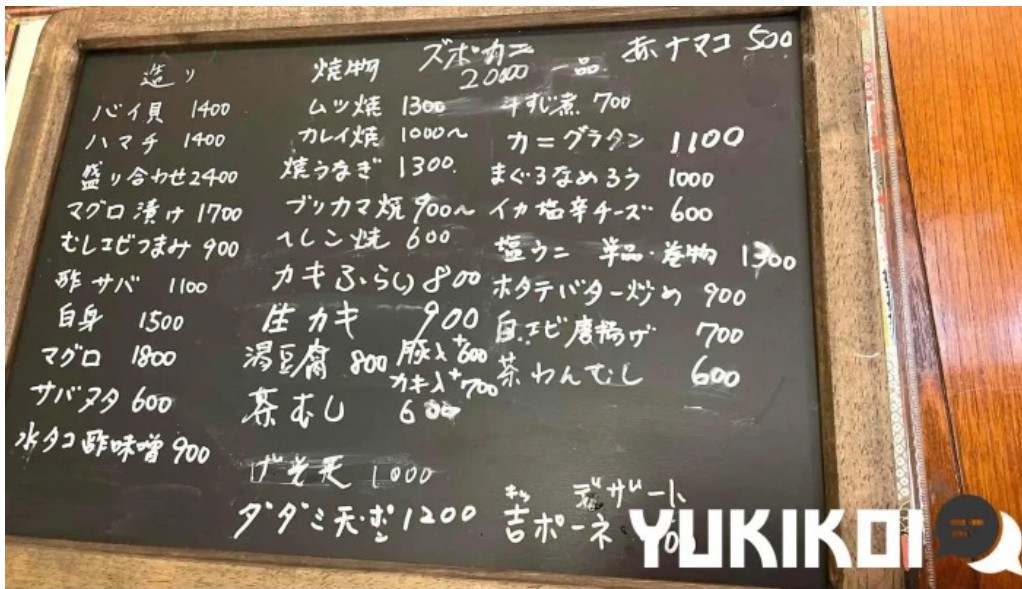 造り
バイ貝 1400
ハマチ 1400
盛り合わせ 2400
マグロ漬け 1700
むしエビつまみ 900
酢サバ 1100
白身 1500
マグロ 1800
サバヌタ 600
水タコ酢味噌 900
焼物
ムツ焼 1300
カレイ焼 1000〜
焼うなぎ 1300
ブリカマ焼 900〜
ヘレン焼 600
カキふらい 800
生カキ 900
湯豆腐 800 豚入+600
カキ入+700
茶むし 600
げそ天 1000
ダダミ天・ポン 1200
ズボカニ
20000
一品
赤ナマコ 500
牛すじ煮 700
カニグラタン 1100
まぐろなめろう 1000
イカ塩辛チーズ 600
塩ウニ 単品・巻物 1300
ホタテバター炒め 900
白エビ唐揚げ 700
茶わんむし 600
デザート
吉ポーネ
YUKIKOI